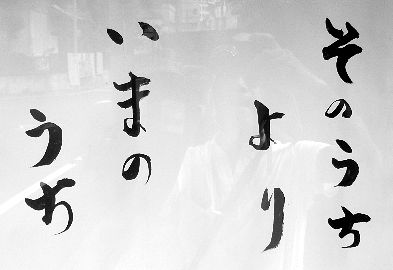 そのうち
より
いまの
うち